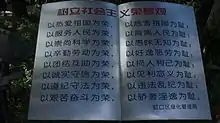 树立社会主义荣辱观
以热爱祖国为荣、
以服务人民为荣、
以崇尚科学为荣、
以辛勤劳动为荣、
以团结互助为荣、
以诚实守信为荣、
以遵纪守法为荣、
以艰苦奋斗为荣、
以危害祖国为耻,
以背离人民为耻,
以愚昧无知为耻,
以好逸恶劳为耻,
以损人利己为耻,
以见利忘义为耻,
以违法乱纪为耻,
以骄奢淫逸为耻。
虹口区绿化管理局